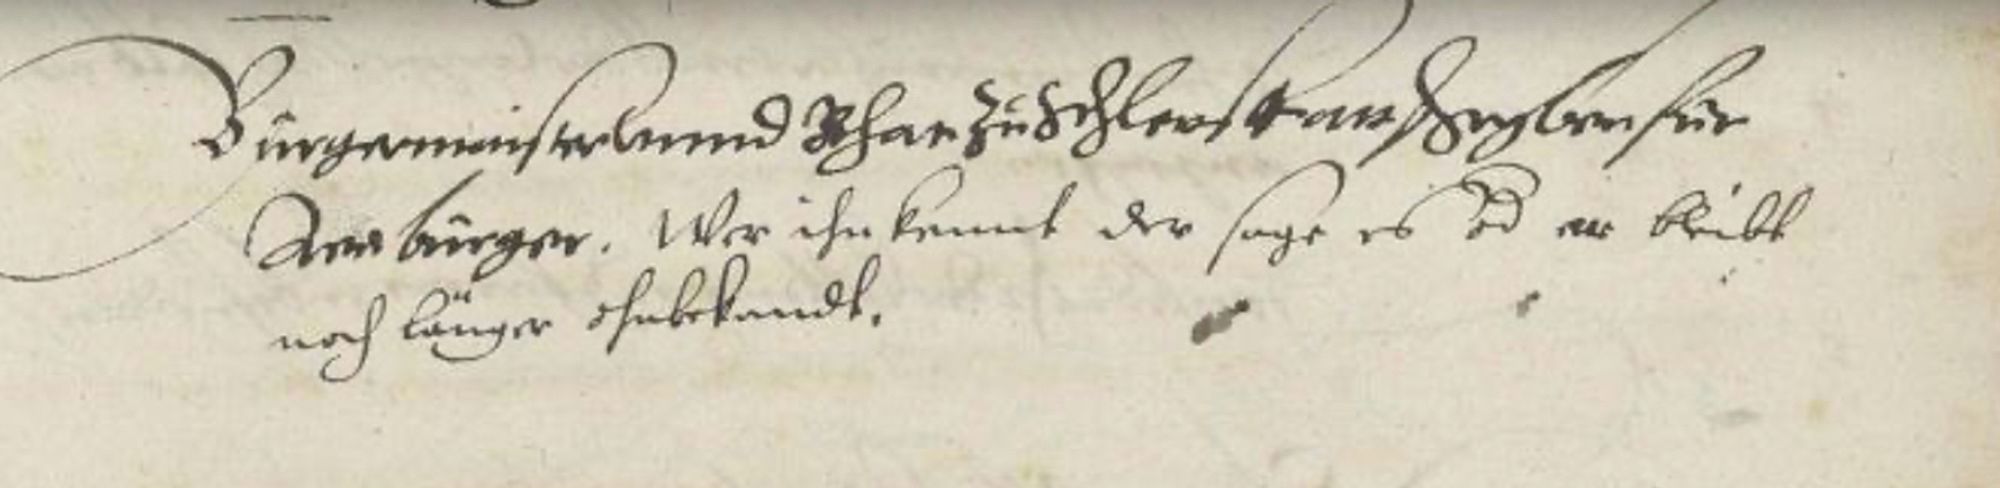 Bürgermeister vnnd Rhat zu Schletstatt schreyben für
Iren bürger. Wer ihn kennt der sage es od er bleibt
noch länger ohnbekandt.